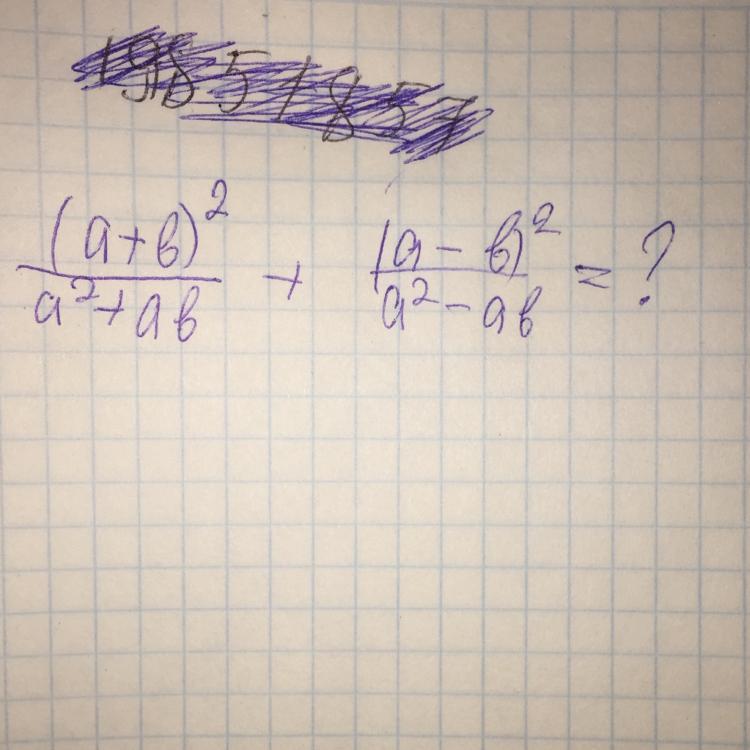 (a+b)² / a²+ab + (a-b)² / a²-ab = ?